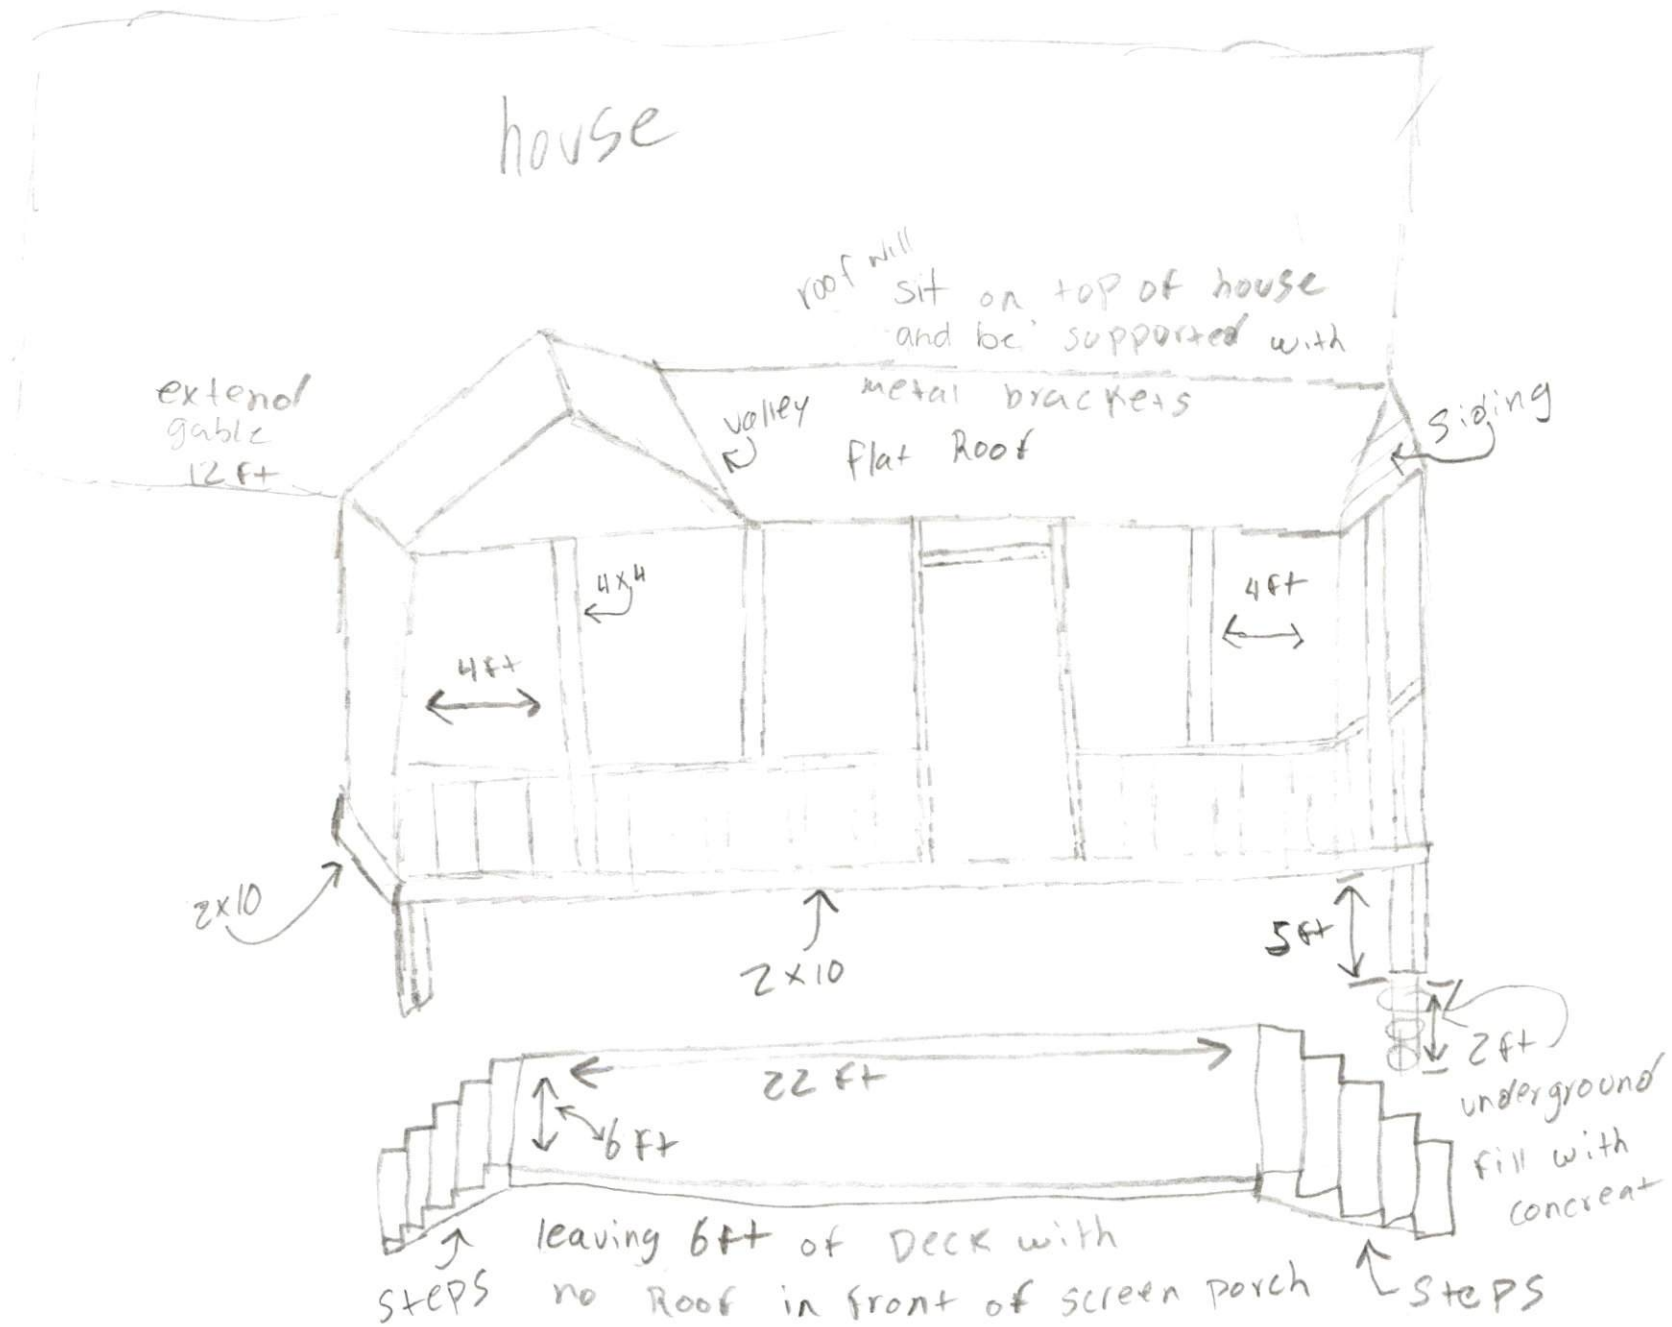 house
roof will
sit on top of house
and be supported with
metal brackets
flat Roof
extend
gable
12 ft
valley
siding
4x4
4ft
4ft
2x10
2x10
5ft
2ft
underground
fill with
concreat
22 ft
6 ft
leaving 6ft of Deck with
no Roof in front of screen porch
steps
steps